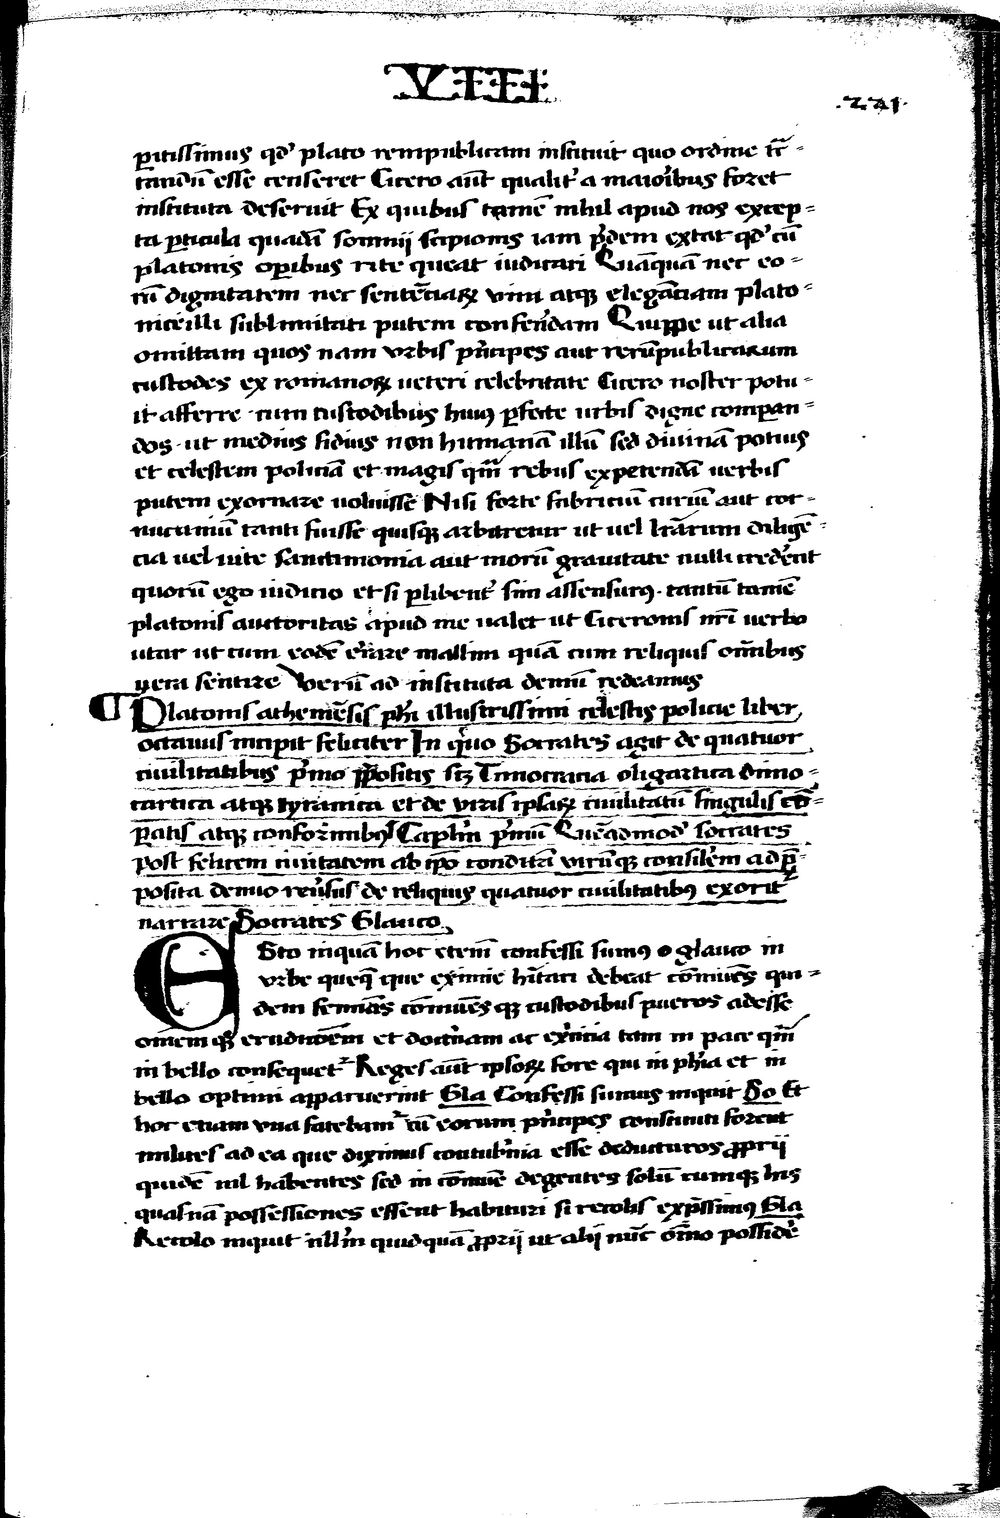 VIII
.221.
ꝑitissimus qd' plato rempublicam instituit quo ordine tr̄-
tandū esse censeret Cicero aūt qualit' a maiorībus foret
instituta deseruit Ex quibus tamē nihil apud nos excep-
ta ꝑticula quadā somnij scipionis iam p'dem extat qd' cū
platonis oꝑibus rite queat iudicari Quāquā nec eo-
rū dignitatem nec sentēciaꝝ vim atqꝫ elegāciam plato-
nice illi sublimitati putem conferēdam Quippe ut alia
omittam quos nam vrbis p'ncipes aut rerūpublicarum
custodes ex romanoꝝ ueteri celebritate Cicero noster potu-
it afferre cum custodibus huiꝰ ꝑfecte urbis digne compan-
dos · ut medius fidius non humanā illū sed diuinā potius
et celestem policiā et magis qm̄ rebus expetendā uerbis
putem exornare uoluisse Nisi forte fabriciū curiū aut cor-
nucaniū tanti fuisse quisqꝫ arbitretur ut uel lr̄arum diligē-
cia uel uite sanctimonia aut morū grauitate nulli cred'ent
quorū ego iudicio et si ꝑlibent' sim assensurꝰ · tantū tamē
platonis auctoritas apud me ualet ut Ciceronis nr̄i uerbo
utar ut cum eodē e'rare malim quā cum reliquis om̄ibus
uera sentire Verū ad instituta demū redeamus
Platonis atheniēsis ph'i illustrissimi celestis policie liber
octauus incipit feliciter In quo Socrates agit de quatuor
ciuilitatibus p'mo ꝓpositis sꝫ Timocracia oligartica dimo-
cartica atqꝫ tyranica et de viris ipsaꝝ ciuilitatū singulis cō-
ꝑatis atqꝫ conformibꝰ Capl'm p'miū Quēadmod' socrates
post felicem ciuitatem ab ip̄o conditā virūqꝫ consil'em ad p̄-
posita denuo reu'sus de reliquis quatuor ciuilitatibꝰ exorit'
narrare Socrates Glauco
Esto inquā hoc etem̄ confessi sumꝰ o glauco in
vrbe queqꝫ que eximie h'itari debeat cōmuēs qui-
dem feminas cōmuēs qꝫ custodibus pueros adesse
omēm qꝫ erudicōem et doct'nam ac ex'cicia tam in pace qm̄
in bello consequet' Reges aūt ipsoꝝ fore qui in ph'ia et in
bello optimi apparuerint Gla Confessi sumus inquit So Et
hoc etiam vna fatebam' cū eorum p'ncipes constituti forent
milites ad ea que diximus contub'nia esse deducturos ꝓprij
quidē nil habentes sed in cōmuē degentes solū cumqꝫ his
quasnā possessiones essent habituri si recolis exp'ssimꝰ Gla
Recolo inquit null'm quidquā ꝓprij ut alij nūc om̄o possidē'